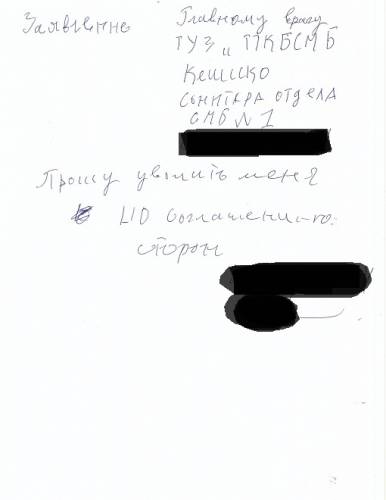 Заявление
Главному врачу
ГУЗ "ПКБСМБ
Кешиско
санитара отдела
СМБ №1
Прошу уволить меня
по соглашению
сторон